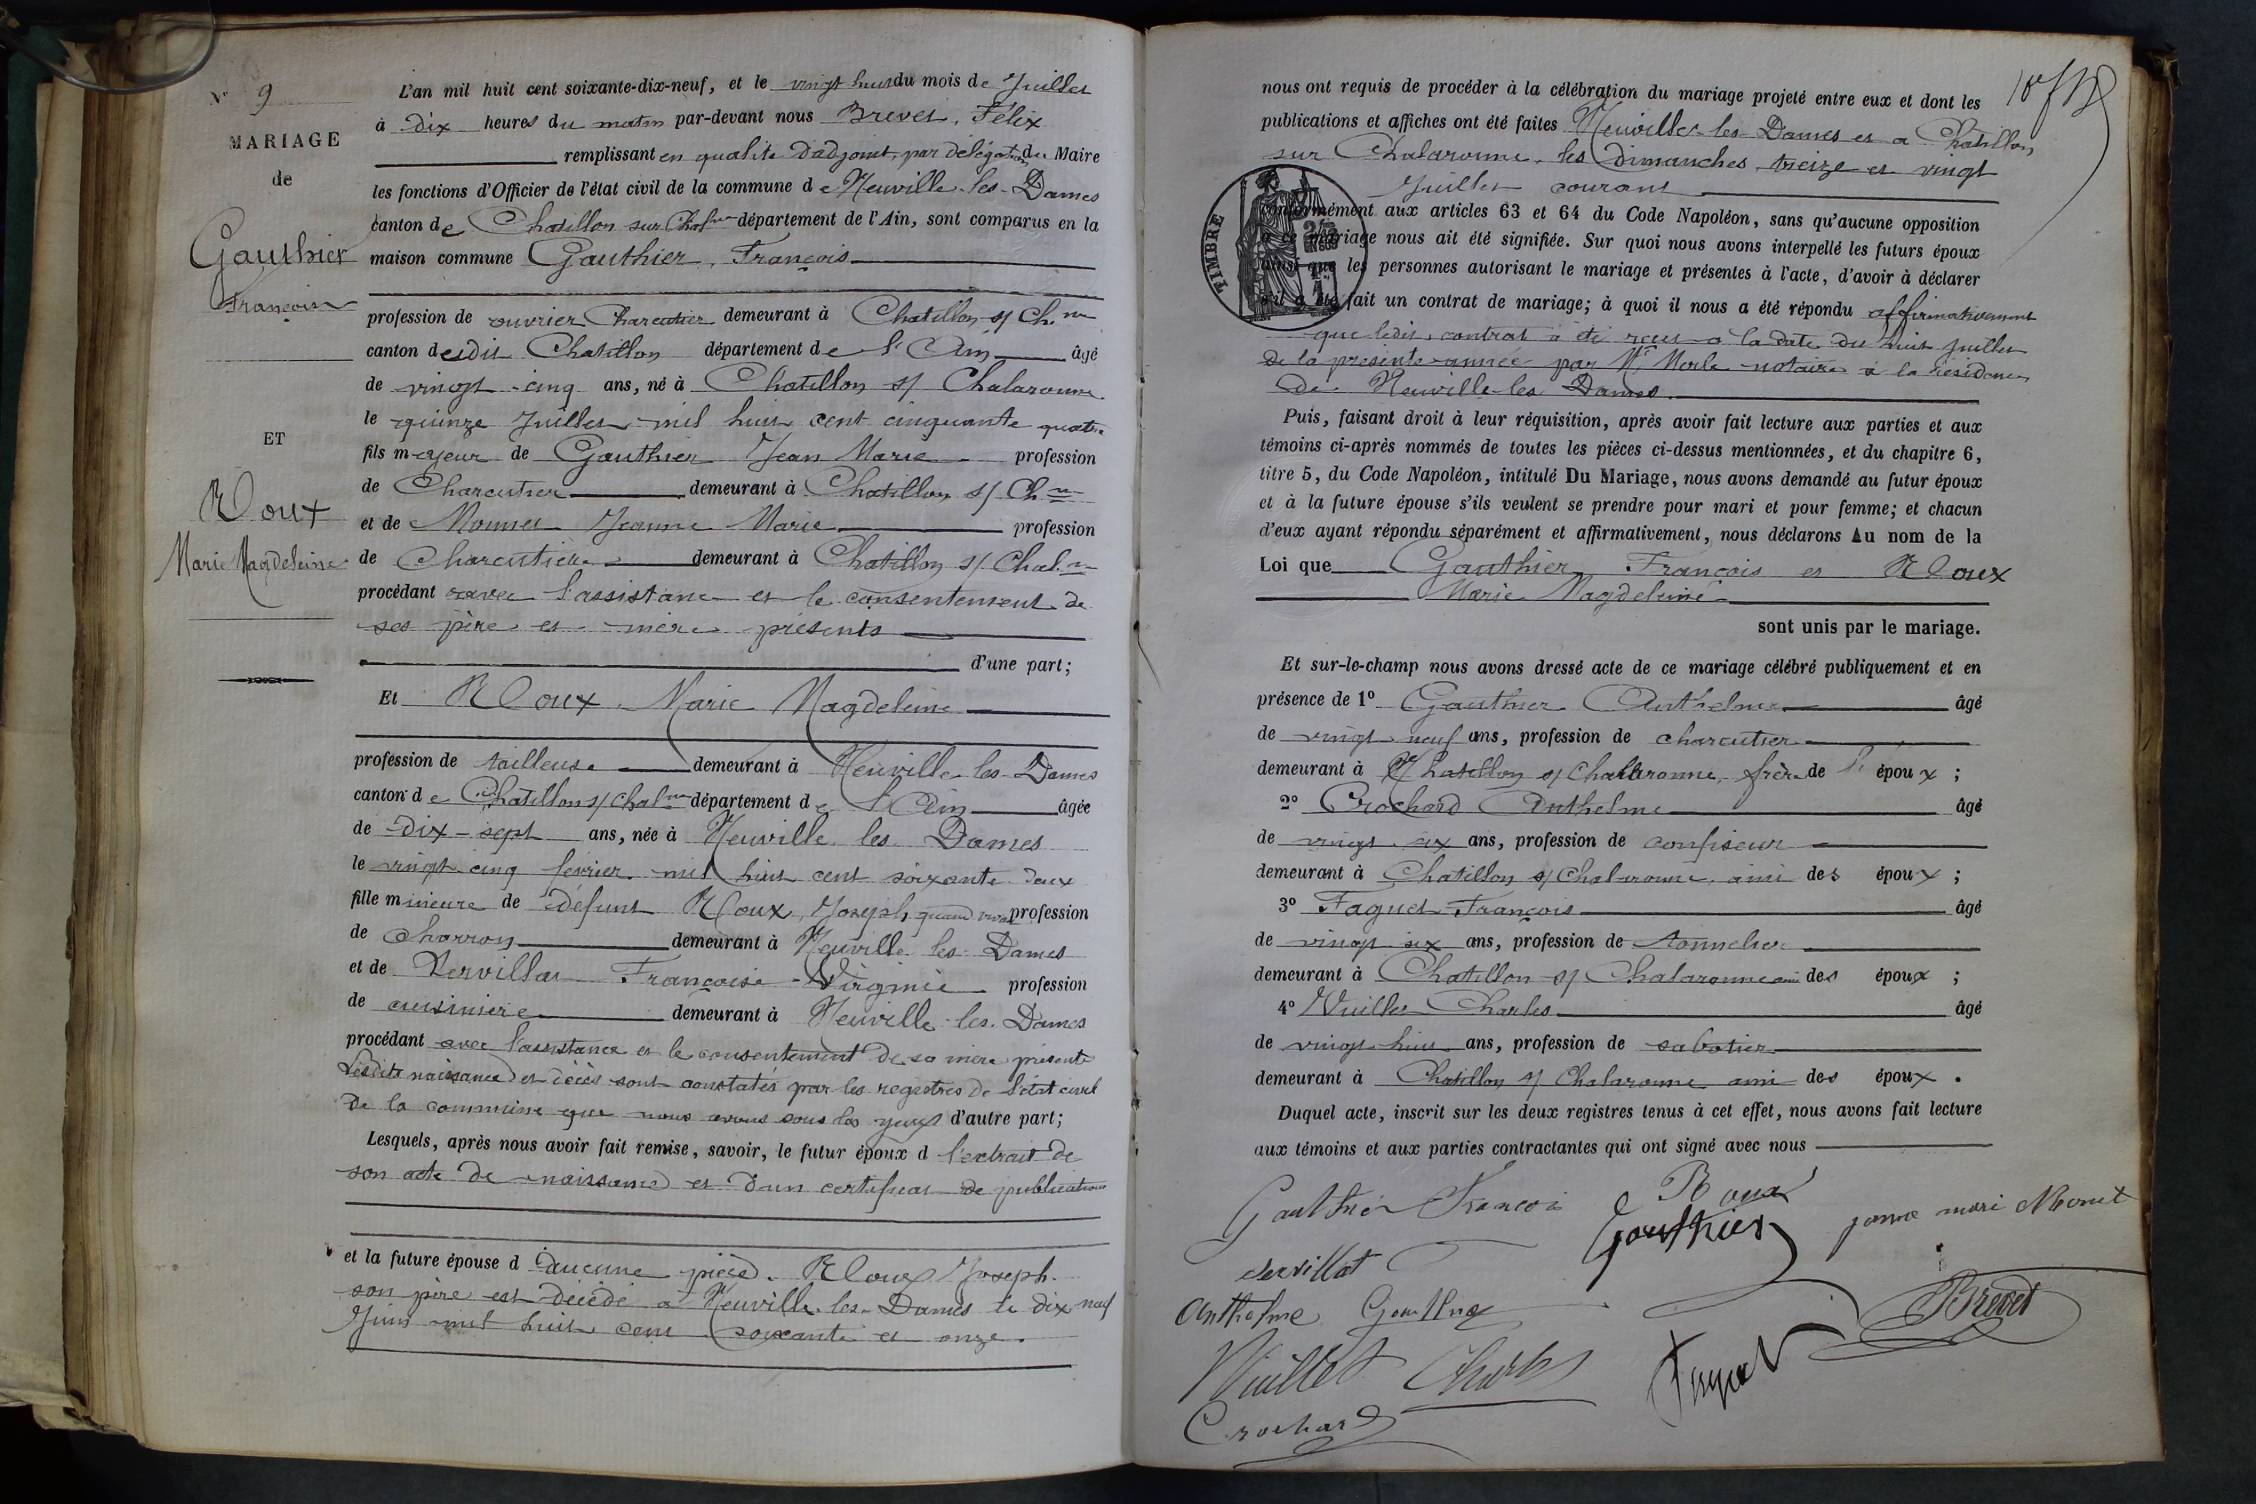 N° 9
MARIAGE
de
Gauthier
François
ET
Roux
Marie Magdeleine
L'an mil huit cent soixante-dix-neuf, et le vingt huit du mois de Juillet
à dix heures du matin par-devant nous Brevet, Félix
remplissant en qualité d'adjoint, par délégation du Maire
les fonctions d'Officier de l'état civil de la commune de Neuville-les-Dames
canton de Chatillon sur Chal^ne département de l'Ain, sont comparus en la
maison commune Gauthier, François
profession de ouvrier Charcutier demeurant à Chatillon s/ Ch.^ne
canton dudit Chatillon département de l'Ain âgé
de vingt-cinq ans, né à Chatillon s/ Chalaronne
le quinze Juillet mil huit cent cinquante quatre
fils majeur de Gauthier Jean Marie profession
de Charcutier demeurant à Chatillon s/ Ch^ne
et de Monnet Jeanne Marie profession
de Charcutière demeurant à Chatillon s/ Chal.^ne
procédant avec l'assistance et le consentement de
ses père et mère présents
d'une part;
Et Roux Marie Magdeleine
profession de tailleuse demeurant à Neuville-les-Dames
canton de Chatillon s/ Chal^ne département de l'Ain âgée
de dix-sept ans, née à Neuville les Dames
le vingt cinq fevrier mil huit cent soixante deux
fille mineure de défunt Roux, Joseph, quand vivait profession
de charron demeurant à Neuville les Dames
et de Servillat Françoise Virginie profession
de cuisinière demeurant à Neuville-les-Dames
procédant avec l'assistance et le consentement de sa mère présente
Lesdits naissance et décès sont constatés par les registres de l'état civil
de la commune que nous avons sous les yeux d'autre part;
Lesquels, après nous avoir fait remise, savoir, le futur époux d l'extrait de
son acte de naissance et d'un certificat de publications
et la future épouse d'aucune pièce. Roux Joseph
son père est décédé à Neuville-les-Dames le dix neuf
Juin mil huit cent soixante et onze.
nous ont requis de procéder à la célébration du mariage projeté entre eux et dont les
publications et affiches ont été faites Neuville-les-Dames et à Chatillon
sur Chalaronne, les dimanches treize et vingt
Juillet courant
TIMBRE
conformément aux articles 63 et 64 du Code Napoléon, sans qu'aucune opposition
à ce mariage nous ait été signifiée. Sur quoi nous avons interpellé les futurs époux
ainsi que les personnes autorisant le mariage et présentes à l'acte, d'avoir à déclarer
s'il a été fait un contrat de mariage; à quoi il nous a été répondu affirmativement
que ledit contrat à été reçu à la date du huit juillet
de la presente année par M^e Merle notaire à la résidence
de Neuville-les Dames.
Puis, faisant droit à leur réquisition, après avoir fait lecture aux parties et aux
témoins ci-après nommés de toutes les pièces ci-dessus mentionnées, et du chapitre 6,
titre 5, du Code Napoléon, intitulé Du Mariage, nous avons demandé au futur époux
et à la future épouse s'ils veulent se prendre pour mari et pour femme; et chacun
d'eux ayant répondu séparément et affirmativement, nous déclarons Au nom de la
Loi que Gauthier François et Roux
Marie Magdeleine
sont unis par le mariage.
Et sur-le-champ nous avons dressé acte de ce mariage célébré publiquement et en
présence de 1° Gauthier Anthelme âgé
de vingt neuf ans, profession de charcutier
demeurant à Chatillon s/ Chalaronne, frère de l' époux;
2° Crochard Anthelme âgé
de vingt six ans, profession de confiseur
demeurant à Chatillon s/ Chalaronne, ami des époux;
3° Faguet François âgé
de vingt six ans, profession de tonnelier
demeurant à Chatillon s/ Chalaronne ami des époux;
4° Vuillet Charles âgé
de vingt huit ans, profession de sabotier
demeurant à Chatillon s/ Chalaronne ami des époux.
Duquel acte, inscrit sur les deux registres tenus à cet effet, nous avons fait lecture
aux témoins et aux parties contractantes qui ont signé avec nous
Gauthier François Roux
Gauthier janne mari Monet
servillat
Anthelme Gauthier Brevet
Vuillet Charles Faguet
Crochard